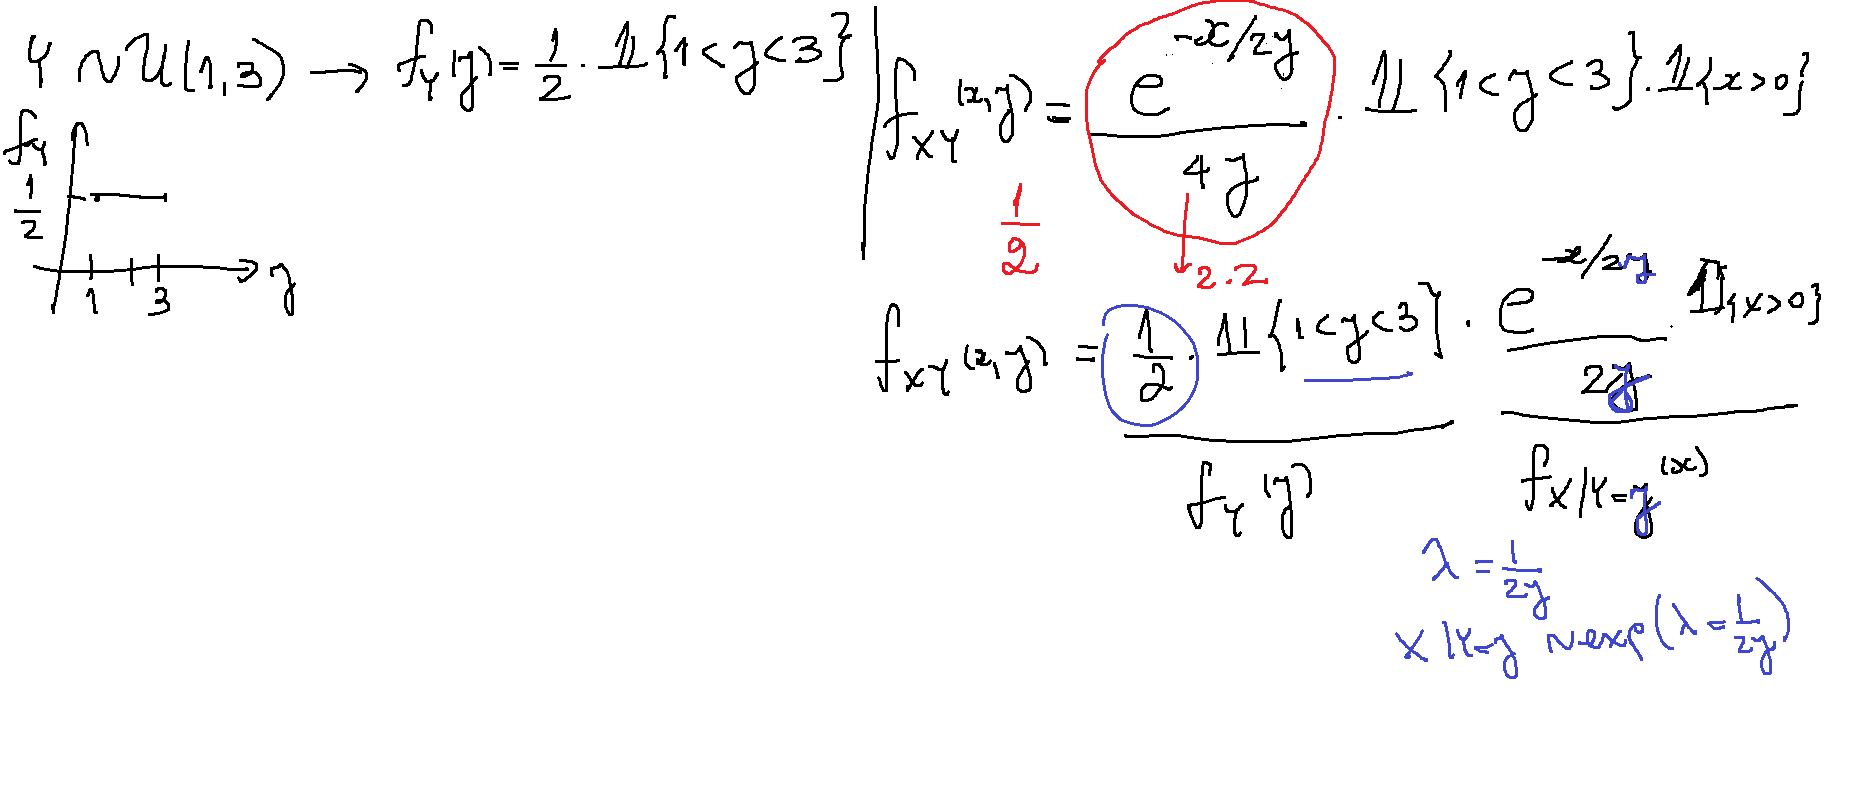 Y ~ U(1,3) → f_Y(y) = 1/2 · 𝟙{1<y<3}
f_Y
1/2
1 3 y
f_XY(x,y) = e^(-x/2y) / 4y · 𝟙{1<y<3} · 𝟙{x>0}
1/2
2.2
f_XY(x,y) = 1/2 · 𝟙{1<y<3} · e^(-x/2y) / 2y · 𝟙{x>0}
f_Y(y) f_X|Y=y(x)
λ = 1/2y
X|Y=y ~ exp(λ = 1/2y)